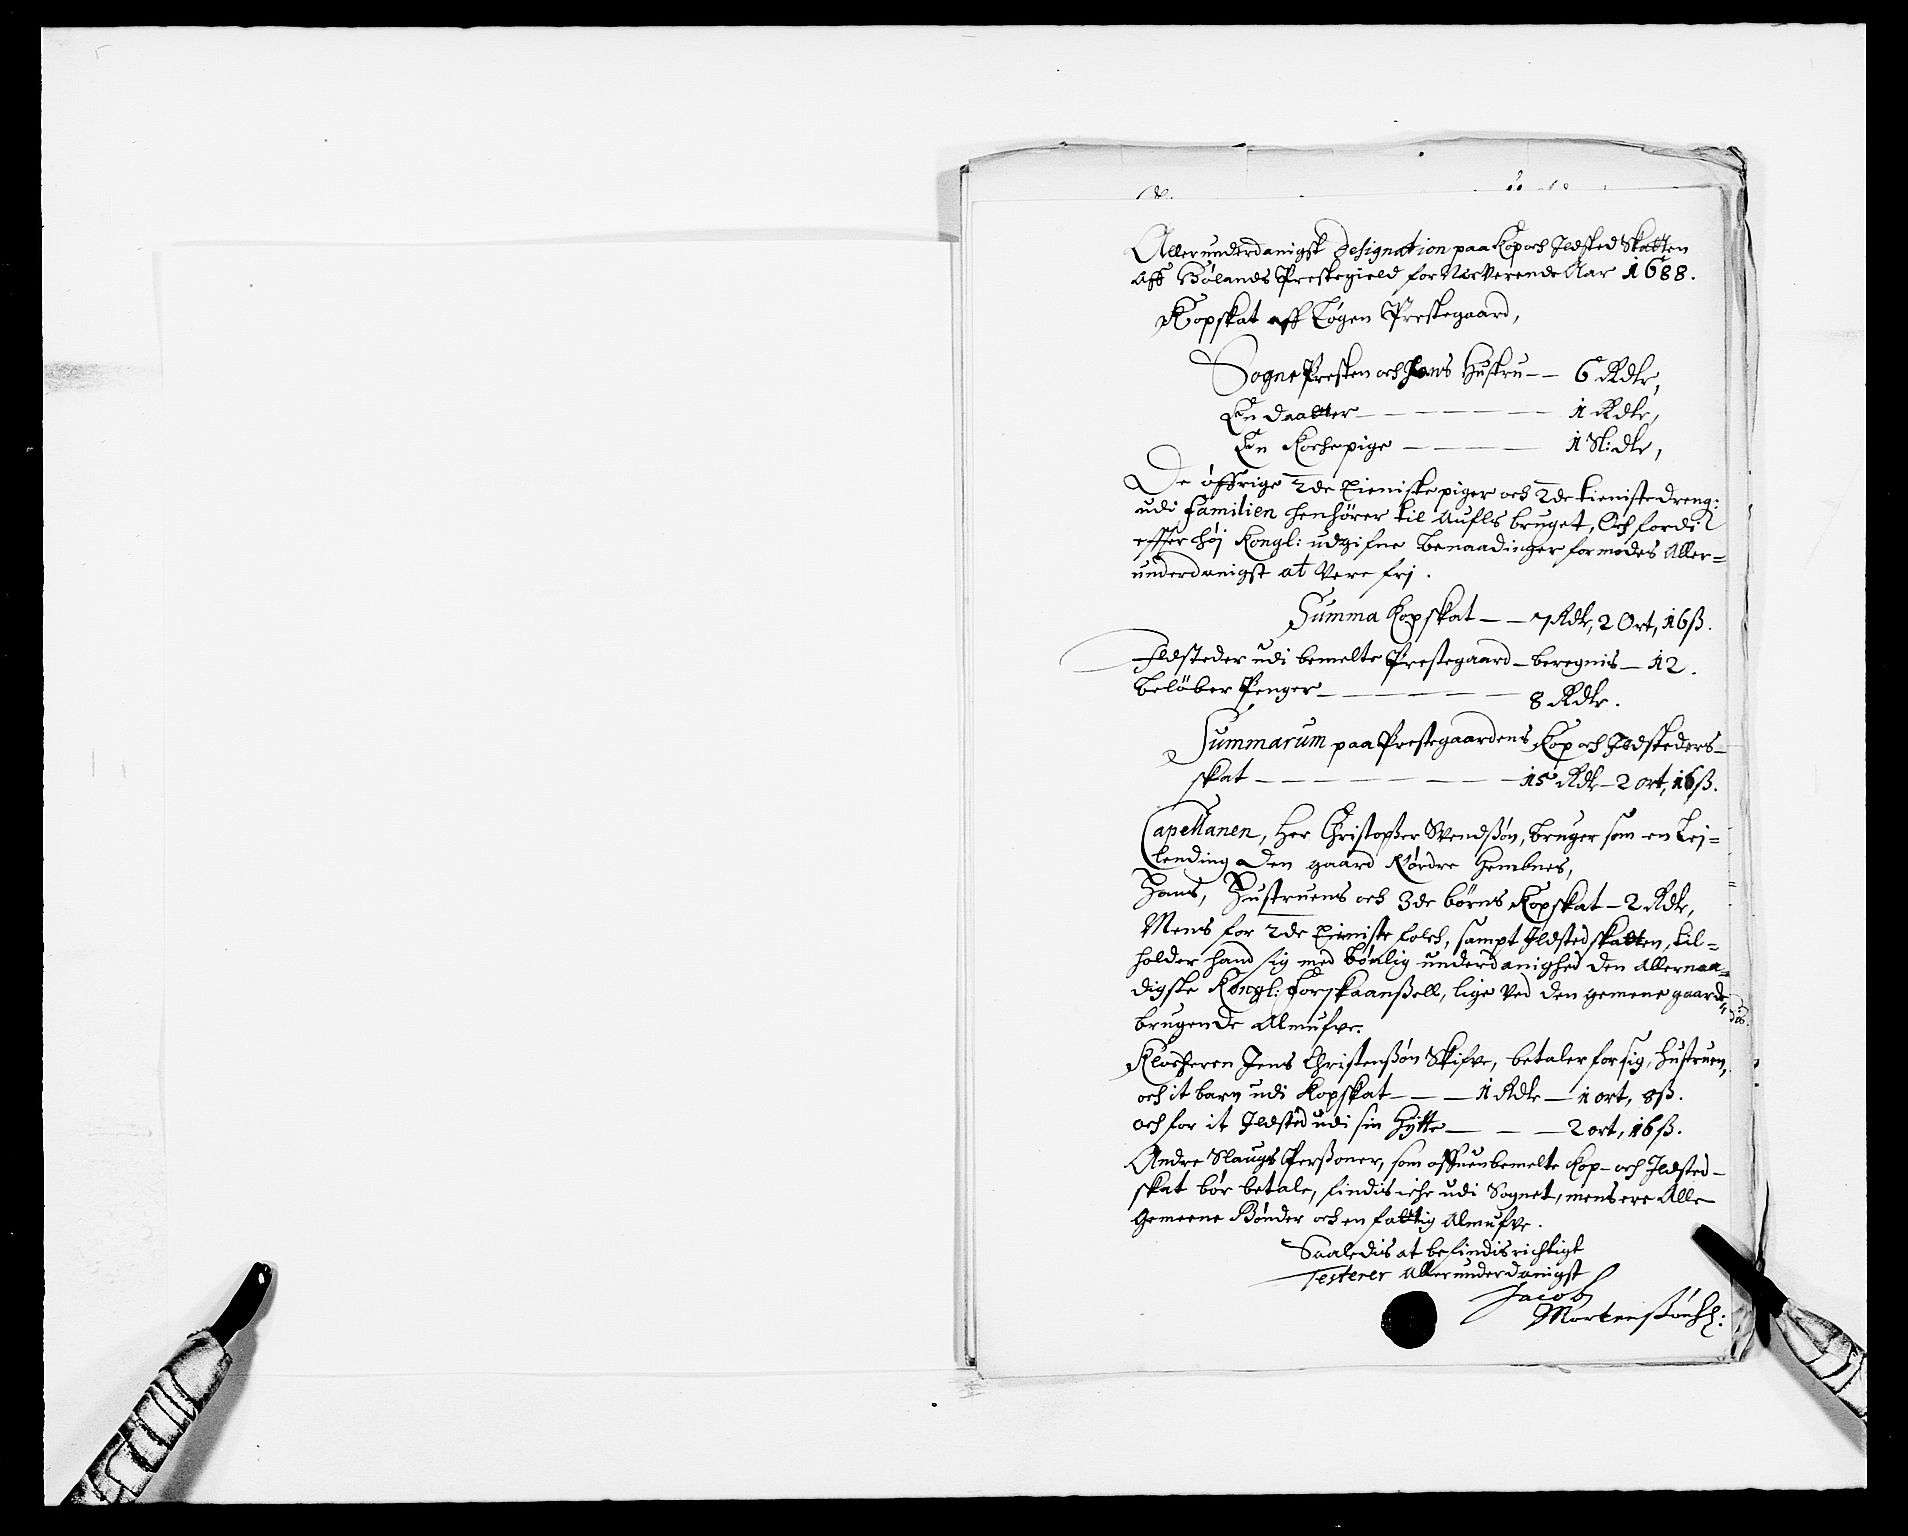 Allerunderdanigst Designation paa Kop och Ildsted Skatten
Aff Hølands Prestegield for Nerverende Aar 1688.
Kopskat aff Løgen Prestegaard,
Sogne Presten och Hans Hustru — — 6 Rdlr,
En daatter — — — — 1 Rdlr,
En Kochepige — — — 1 Sl: dlr,
De øffrige 2de Tieniste piger och 2de tienistedreng:
udi Familien henhører til Aufls bruget, Och fordi
effter høj Kongl: udgifne benaadinger formodes Aller=
underdanigst at Vere frj.
Summa Kopskat — — 7 Rdlr, 2 Ort, 16 ß.
Ildsteder udi bemelte Prestegaard — beregnis — 12.
beløber Penger — — — — 8 Rdlr.
Summarum paa Prestegaardens Kop och Ildsteders=
skat — — — — — 15 Rdlr — 2 ort, 16 ß.
Capellanen, Her Christopher Svendßøn, bruger som en Lej=
lending den gaard Nordre Hembnes,
Hans, Hustruens och 3de børns Kopskat — 2 Rdlr,
Mens for 2de Tieniste folch, sampt Ildstedskatten, til=
holder hand sig med bønlig underdanighed den Allernaa=
digste Kongl: Forskaanßell, lige ved den gemene gaard=
brugende Almufve.
Klocheren Jens Christenßøn Skifve, betaler for sig, Hustruen,
och it barn udi Kopskat — — — 1 Rdlr — 1 ort, 8 ß.
och for it Ildsted udi sin Hytte — — — 2 ort, 16 ß.
Andre Slaugs Perßoner, som offuenbemelte Kop- och Ildsted-
skat bør betale, findis iche udi Sognet, mens ere Alle
Gemeene Bønder och en fattig Almufve.
Saaledis at befindis richtigt
Testerer Allerunderdanigst
Jacob
Mortenßøn